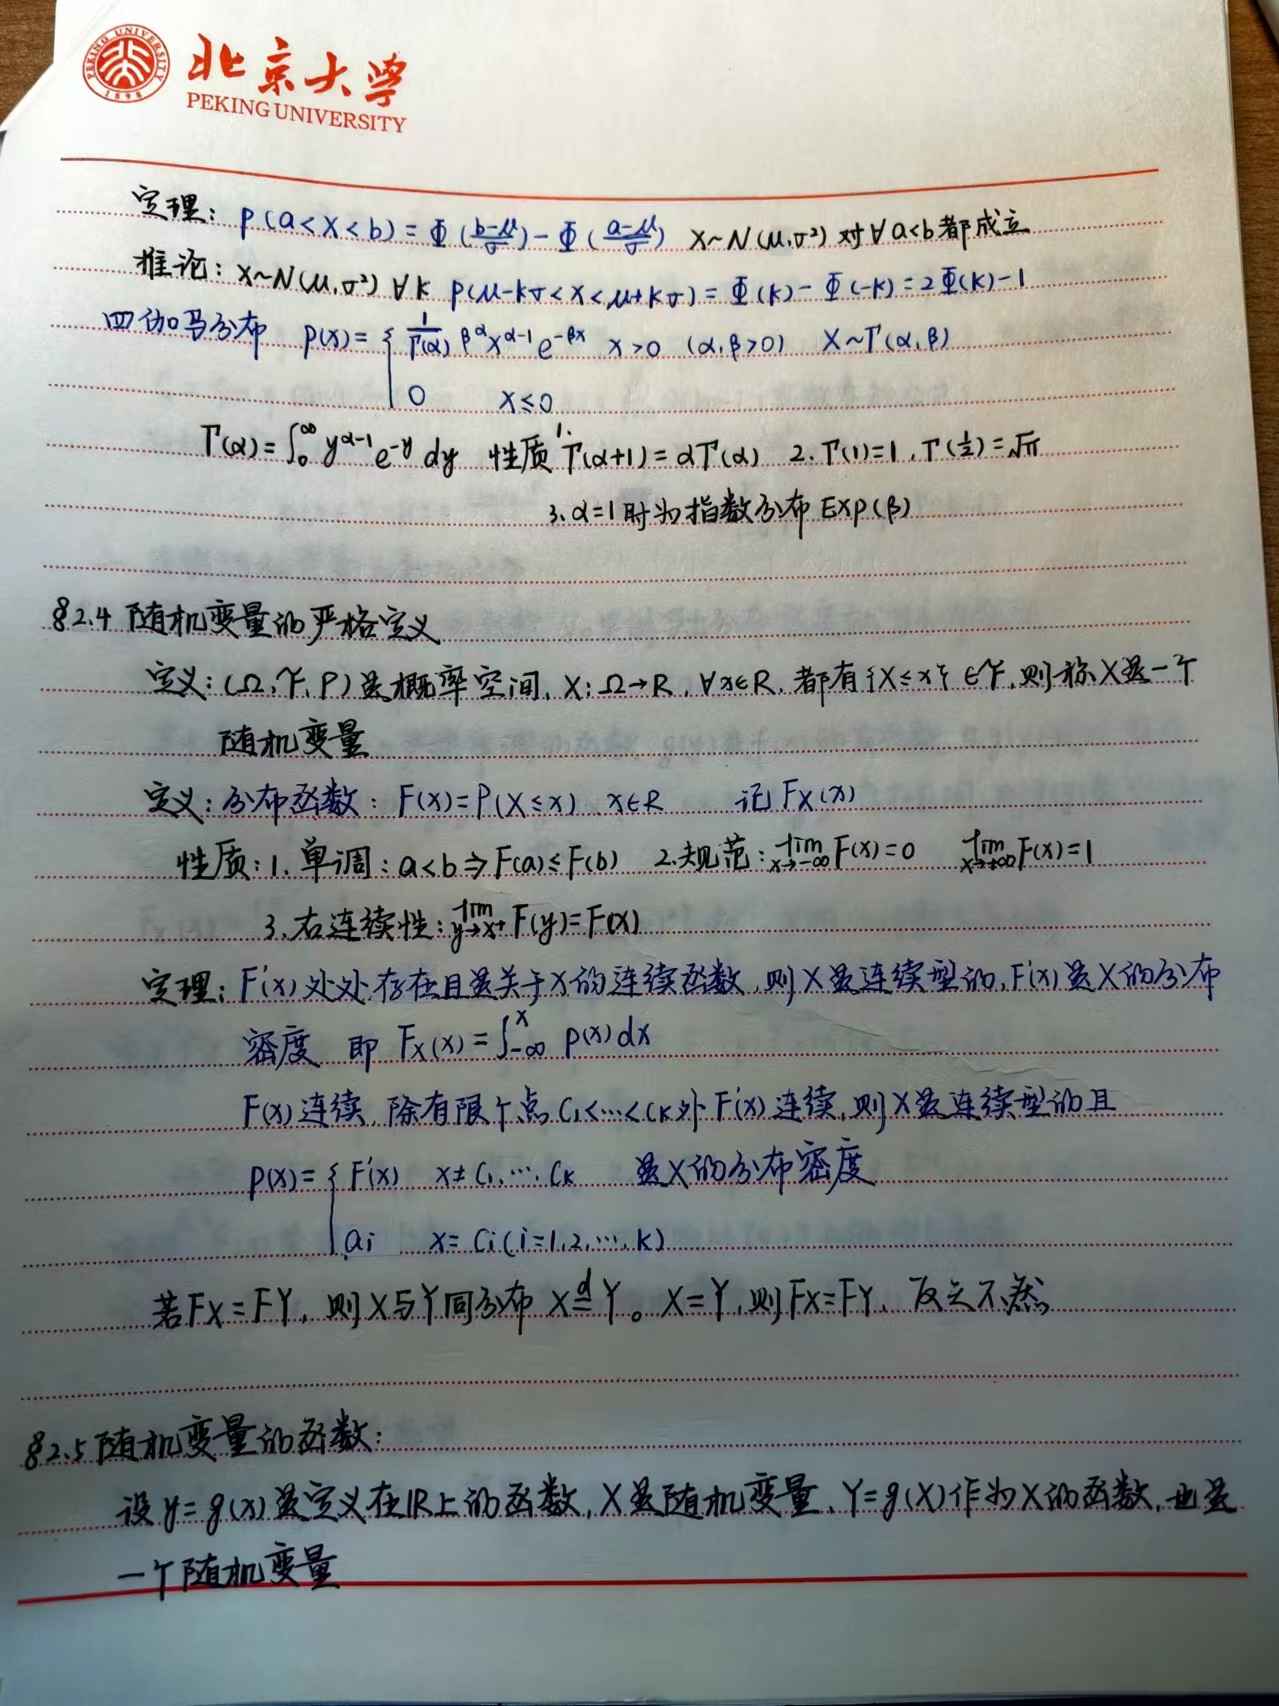 PEKING UNIVERSITY
1898
北京大学
PEKING UNIVERSITY
定理: P(a<X<b)=Φ(\frac{b-μ}{σ})-Φ(\frac{a-μ}{σ}) X~N(μ,σ²) 对∀a<b都成立
推论: X~N(μ,σ²) ∀k P(μ-kσ<X<μ+kσ)=Φ(k)-Φ(-k)=2Φ(k)-1
四 伽马分布 p(x)={ \frac{1}{Γ(α)} β^α x^{α-1} e^{-βx} x>0 (α,β>0) X~Γ(α,β)
0 x≤0
Γ(α)=∫_0^∞ y^{α-1}e^{-y} dy 性质 1. Γ(α+1)=αΓ(α) 2. Γ(1)=1, Γ(½)=√π
3. α=1时为指数分布 Exp(β)
§2.4 随机变量的严格定义
定义: (Ω,ℱ,P)是概率空间, X:Ω→R, ∀x∈R, 都有{X≤x}∈ℱ, 则称X是一个
随机变量
定义: 分布函数: F(x)=P(X≤x) x∈R 记F_X(x)
性质: 1. 单调: a<b⇒F(a)≤F(b) 2. 规范: lim_{x→-∞}F(x)=0 lim_{x→+∞}F(x)=1
3. 右连续性: lim_{y→x+}F(y)=F(x)
定理: F'(x)处处存在且是关于x的连续函数, 则X是连续型的, F'(x)是X的分布
密度 即 F_X(x)=∫_{-∞}^x p(x)dx
F(x)连续, 除有限个点 C₁<…<Cₖ外 F'(x)连续, 则X是连续型的且
p(x)={ F'(x) x≠C₁,…,Cₖ 是X的分布密度
aᵢ x=Cᵢ(i=1,2,…,k)
若FX=FY, 则X与Y同分布 X\overset{d}{=}Y。X=Y, 则FX=FY, 反之不然
§2.5 随机变量的函数:
设y=g(x)是定义在ℝ上的函数, X是随机变量, Y=g(X)作为X的函数, 也是
一个随机变量